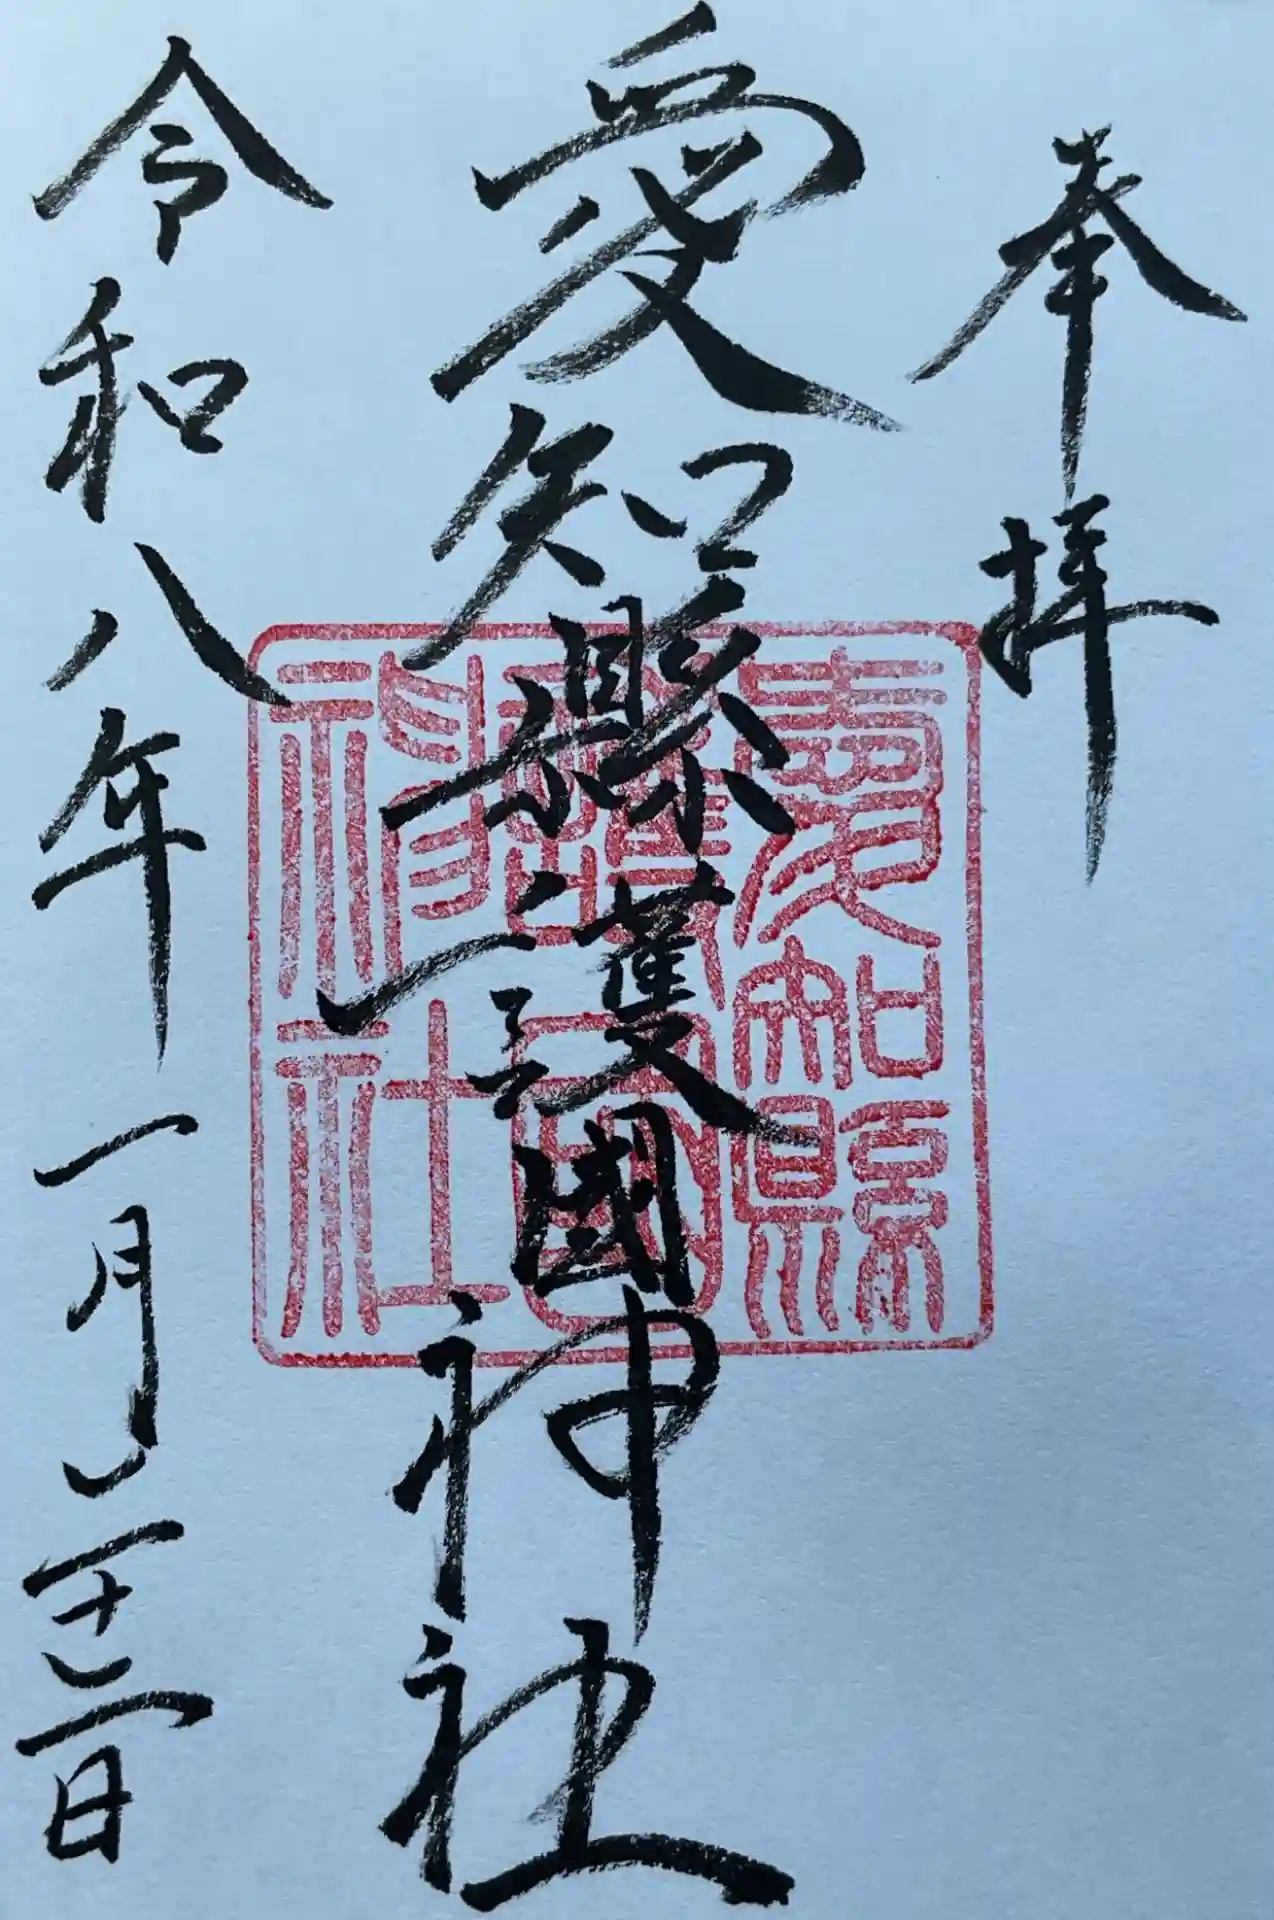 奉拝
愛知縣護國神社
令和八年一月二十三日
愛知縣
護國
神社